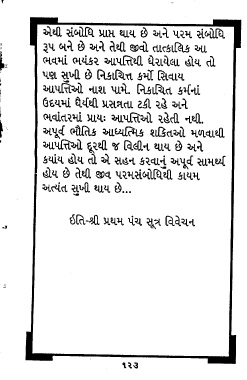 એથી સંબોધિ પ્રાપ્ત થાય છે અને પરમ સંબોધિ
રૂપ બને છે અને તેથી જીવો તાત્કાલિક આ
ભવમાં ભયંકર આપત્તિથી ઘેરાયેલા હોય તો
પણ સુખી છે નિકાચિત્ત કર્મો સિવાય
આપત્તિઓ નાશ પામે. નિકાચિત કર્મનાં
ઉદયમાં ધૈર્યથી પ્રસન્નતા ટકી રહે અને
ભવાંતરમાં પ્રાયઃ આપત્તિઓ રહેતી નથી.
અપૂર્વ ભૌતિક આધ્યત્મિક શક્તિઓ મળવાથી
આપત્તિઓ દૂરથી જ વિલીન થાય છે અને
કયાંય હોય તો એ સહન કરવાનું અપૂર્વ સામર્થ્ય
હોય છે તેથી જીવ પરમસંબોધિથી કાયમ
અત્યંત સુખી થાય છે...
ઇતિ-શ્રી પ્રથમ પંચ સૂત્ર વિવેચન
૧૨૩